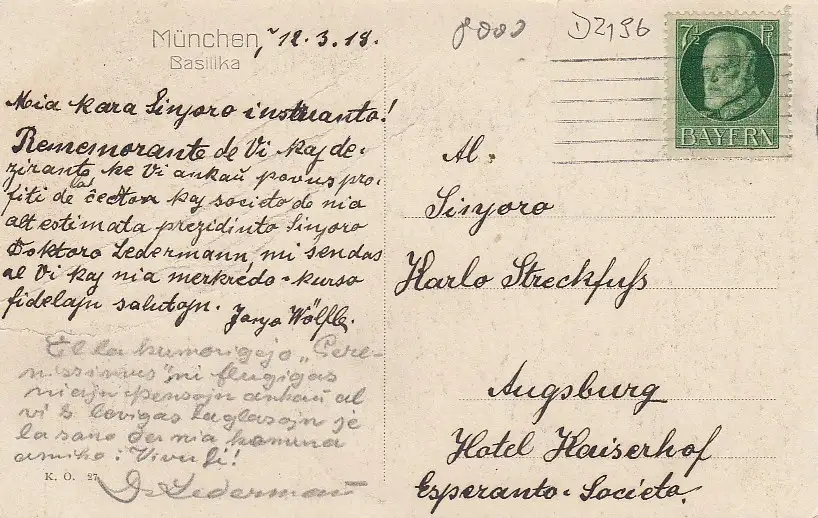 München, 12.3.18.
Basilika
8000
D2196
7½ Pf
BAYERN
Mia kara Sinjoro instruanto!
Rememorante de Vi kaj de-
zirante ke Vi ankaŭ povus pro-
fiti de la ĉeeston kaj societo de nia
alt estimata prezidinto Sinjoro
Doktoro Ledermann, mi sendas
al Vi kaj nia merkredo-kurso
fidelajn salutojn.
Wölfle.
El la humorigejo „Sere-
nissimus" ni flugigas
niajn pensojn ankaŭ al
vi & levigas la glasojn je
la sano de nia komuna
amiko: Vivu li!
Dr Ledermann
K. O. 27
Al.
Sinjoro
Karlo Streckfuß
Augsburg
Hotel Kaiserhof
Esperanto-Societo.